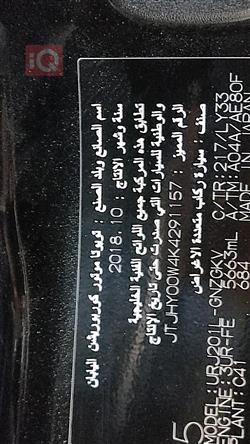 iQ
اسم الصانع وبلد الصنع : تويوتا موتور كوربوريشن اليابان
سنة وشهر الانتاج : 2018.10
تطابق هذه المركبة جميع اللوائح الفنية الخليجية
والوطنية للسيارات التي صدرت حتى تاريخ الانتاج
الرقم المميز : JTJHY00W4K4291157
صنف : سيارة ركاب متعددة الاغراض
MODEL:URJ201L-GNZGKV
ENGINE:3UR-FE 5663mL
C/TR:217/LY33
A/TM:A04A7AE80F
PLANT:C41 684
MADE IN
5